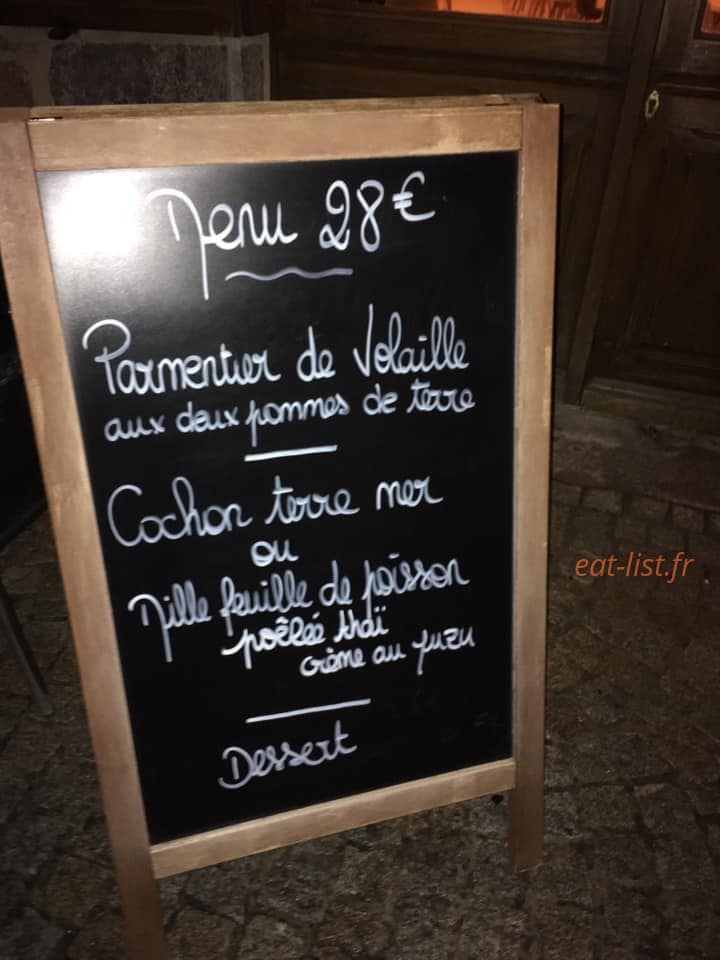 Menu 28€
Parmentier de Volaille
aux deux pommes de terre
Cochon terre mer
ou
Mille feuille de poisson
poêlée thaï
crème au yuzu
Dessert
eat-list.fr